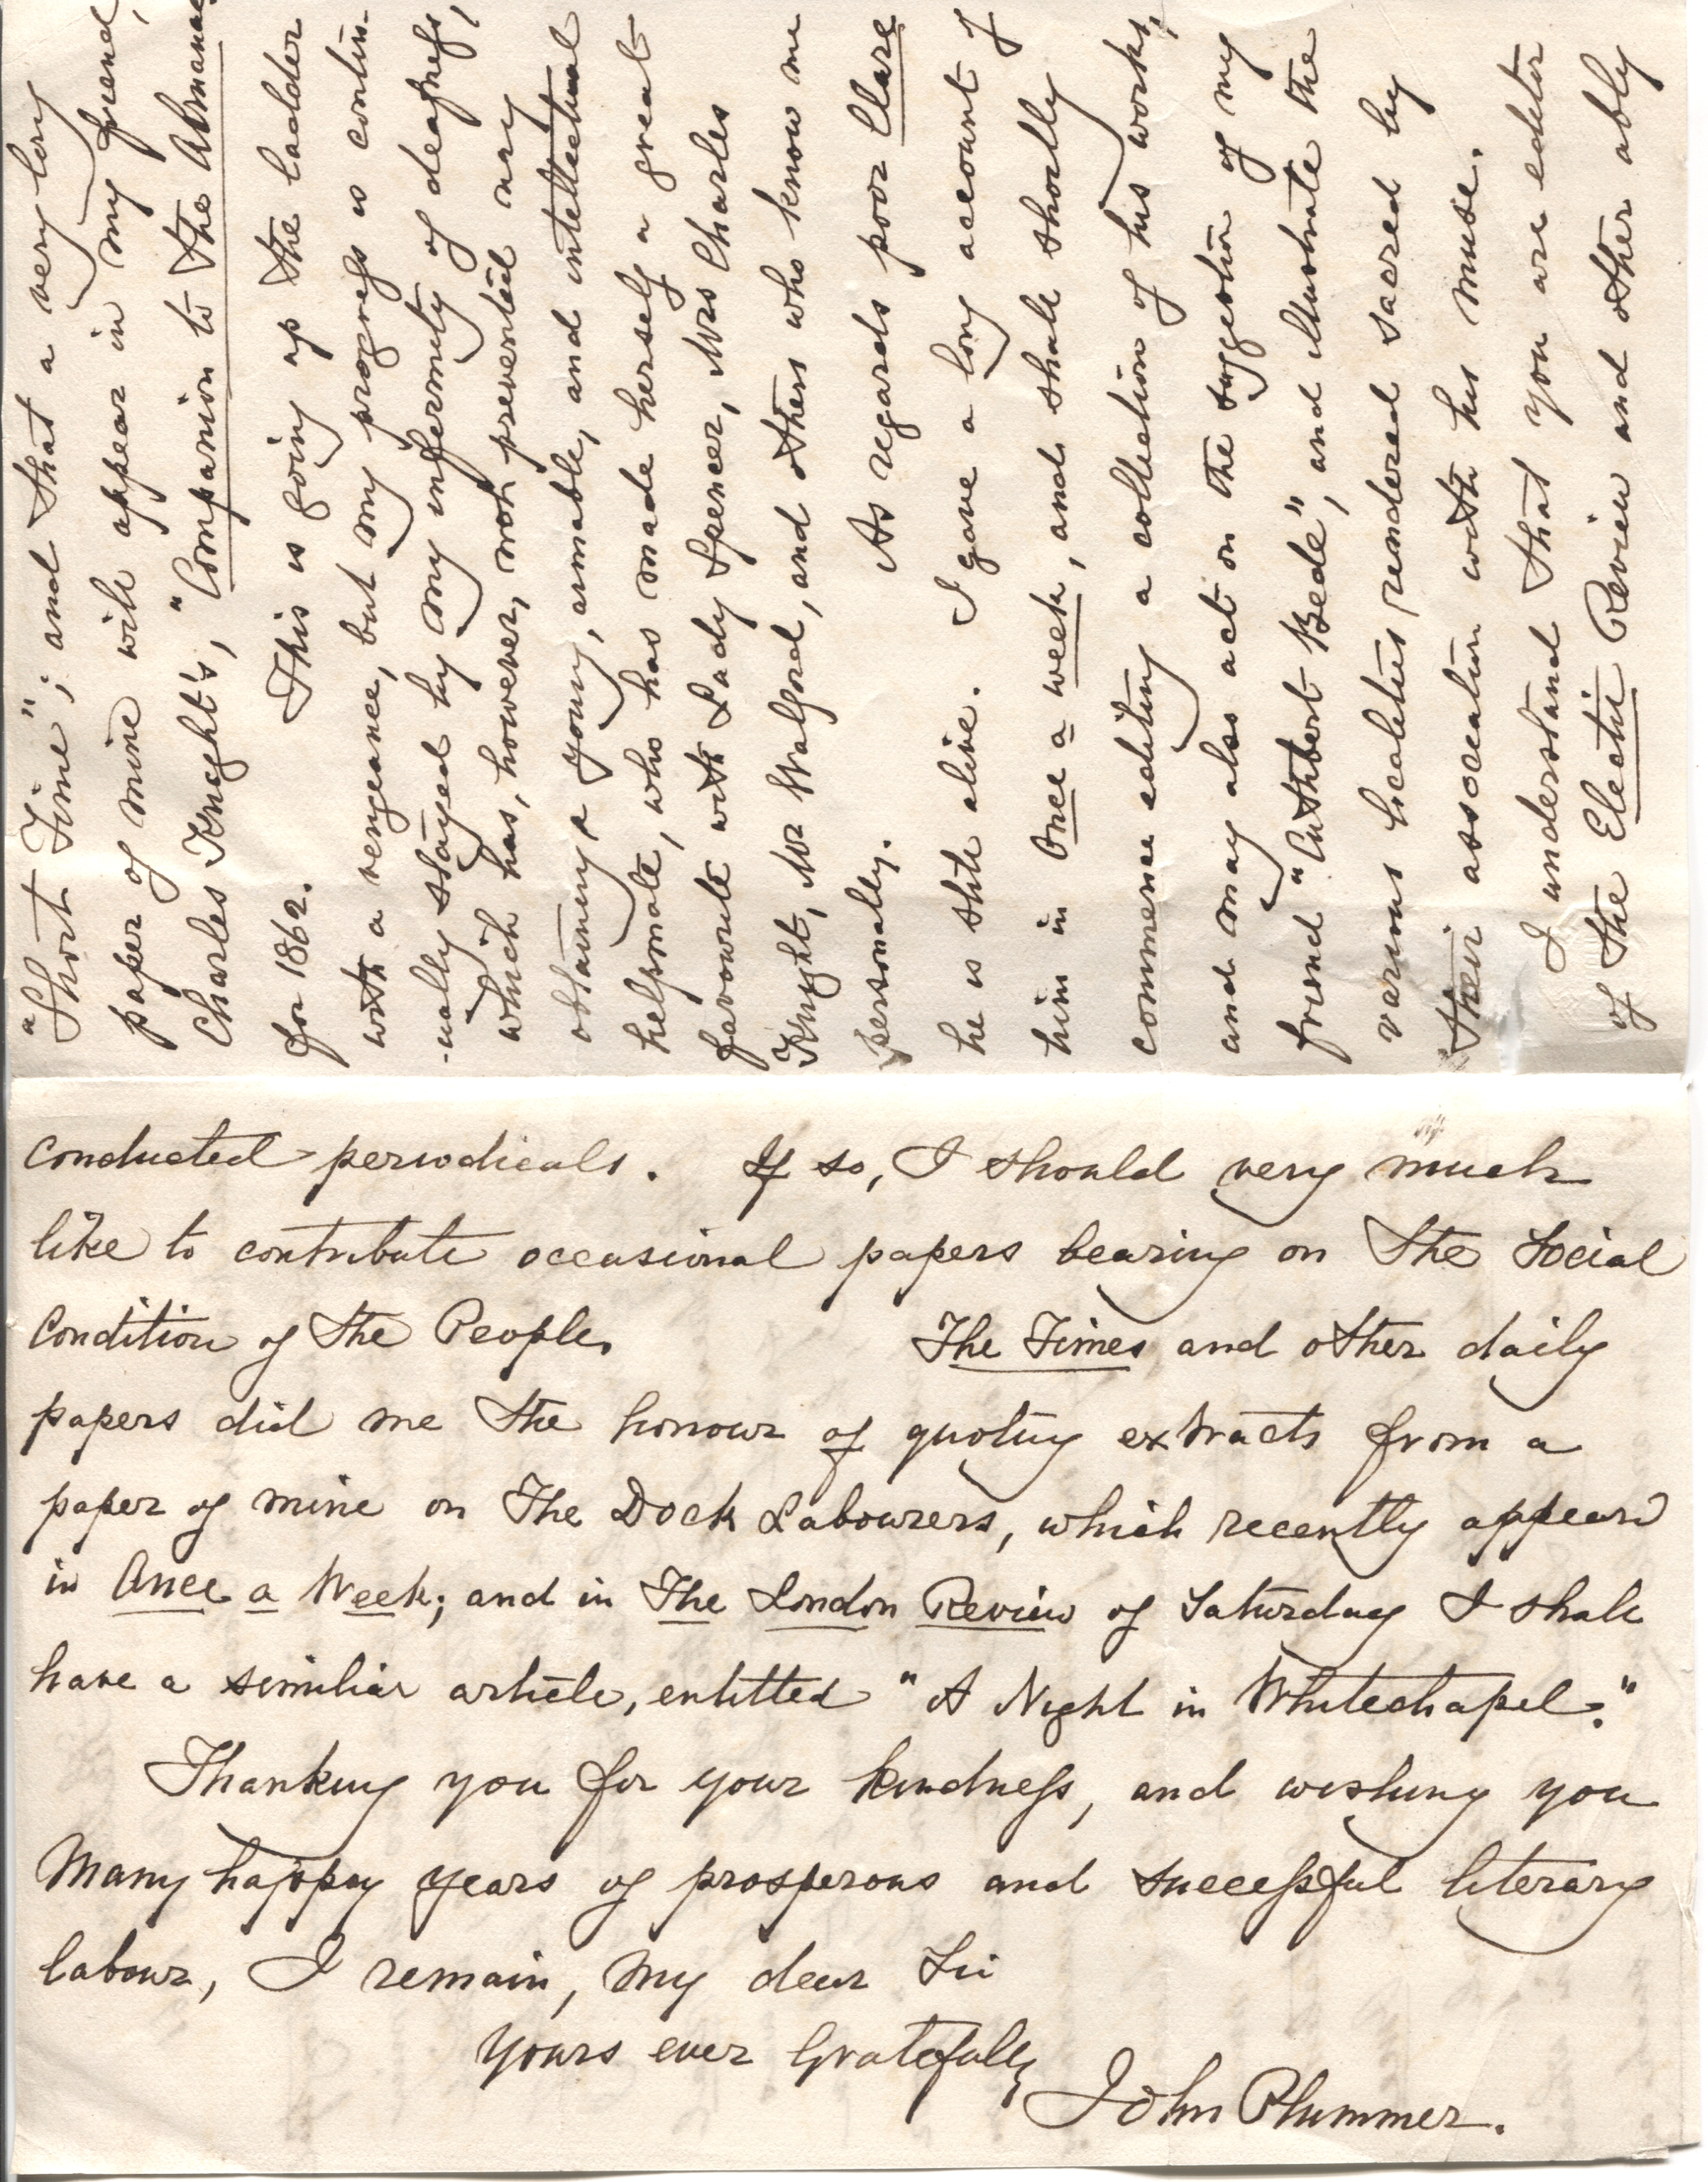 "Short Time"; and that a very long
paper of mine will appear in my friend,
Charles Knight's, "Companion to the Almanac
for 1862. This is going up the ladder
with a vengeance, but my progress is contin-
-ually stayed by my infirmity of deafness,
which has, however, not prevented my
obtaining a young, amiable, and intellectual
helpmate, who has made herself a great
favourite with Lady Spencer, Mrs Charles
Knight, Mr Walford, and others who know me
personally. As regards poor Clare
he is still alive. I gave a long account of
him in Once a week, and shall shortly
commence editing a collection of his works,
and may also act on the suggestion of my
friend "Cuthbert Bede", and illustrate the
various localities rendered sacred by
their association with his muse.
I understand that you are editor
of the Electic Review and other ably
conducted periodicals. If so, I should very much
like to contribute occasional papers bearing on the Social
Condition of the People. The Times and other daily
papers did me the honour of quoting extracts from a
paper of mine on The Dock Labourers, which recently appeard
in Once a Week; and in The London Review of Saturday I shall
have a similiar article, entitled "A Night in Whitechapel."
Thanking you for your kindness, and wishing you
Many happy years of prosperous and successful literary
labour, I remain, My dear Sir
Yours ever Gratefully
John Plummer.